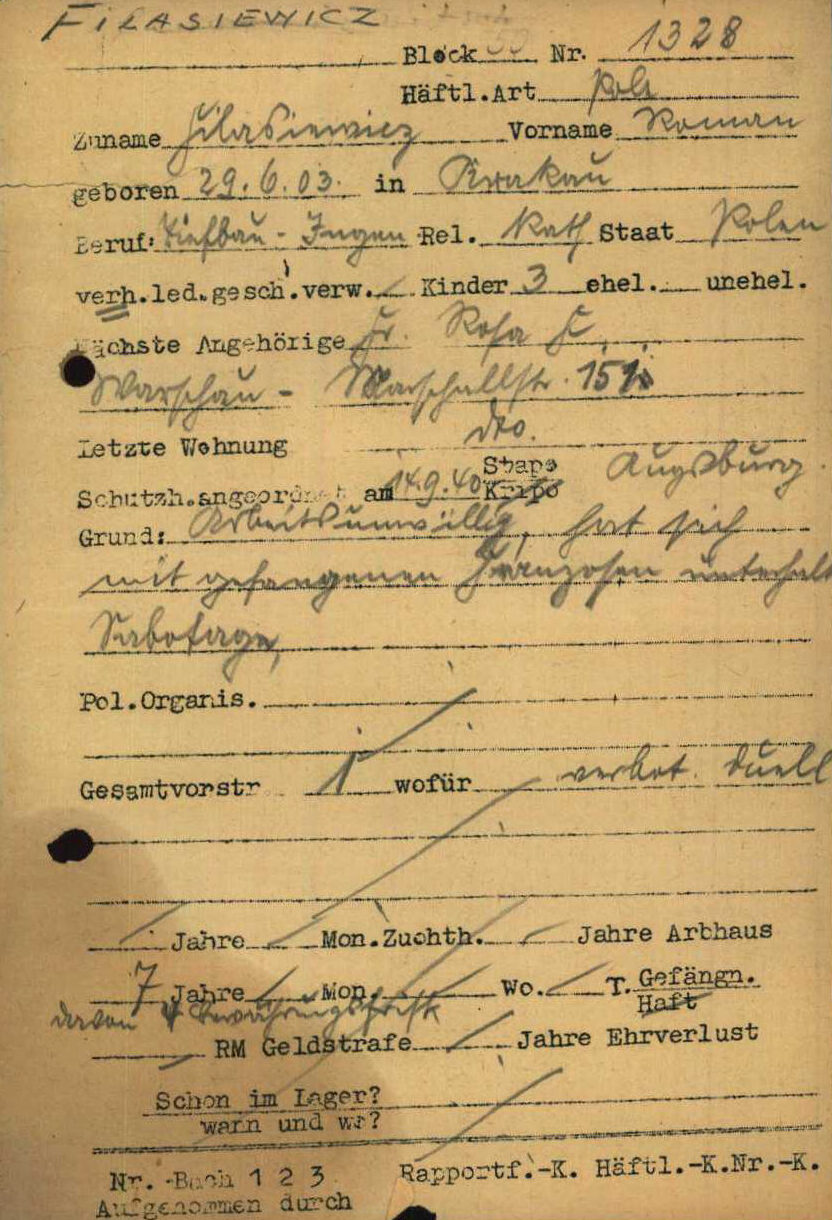 FILASIEWICZ
Block 30 Nr. 1328
Häftl.Art Pole
Zuname Filasiewicz Vorname Roman
geboren 29.6.03. in Krakau
Beruf: Tiefbau-Ingen Rel. Kath Staat Polen
verh.led.gesch.verw. Kinder 3 ehel. unehel.
Nächste Angehörige Fr. Rosa F.
Warschau - Marschallstr.
Letzte Wohnung dto.
Schutzh.angeordnet am 14.9.40 Stapo Kripo Augsburg.
Grund: Arbeitsunwillig, hat sich
mit gefangenen Franzosen unterhalt
Sabotage,
Pol.Organis.
Gesamtvorstr. 1 wofür verbot. Duell
Jahre Mon.Zuchth. Jahre Arbhaus
7 Jahre Mon. Wo. T. Gefängn.
Haft
davon Bewährungsfrist
RM Geldstrafe Jahre Ehrverlust
Schon im Lager?
wann und wo?
Nr.-Buch 1 2 3 Rapportf.-K. Häftl.-K.Nr.-K.
Aufgenommen durch